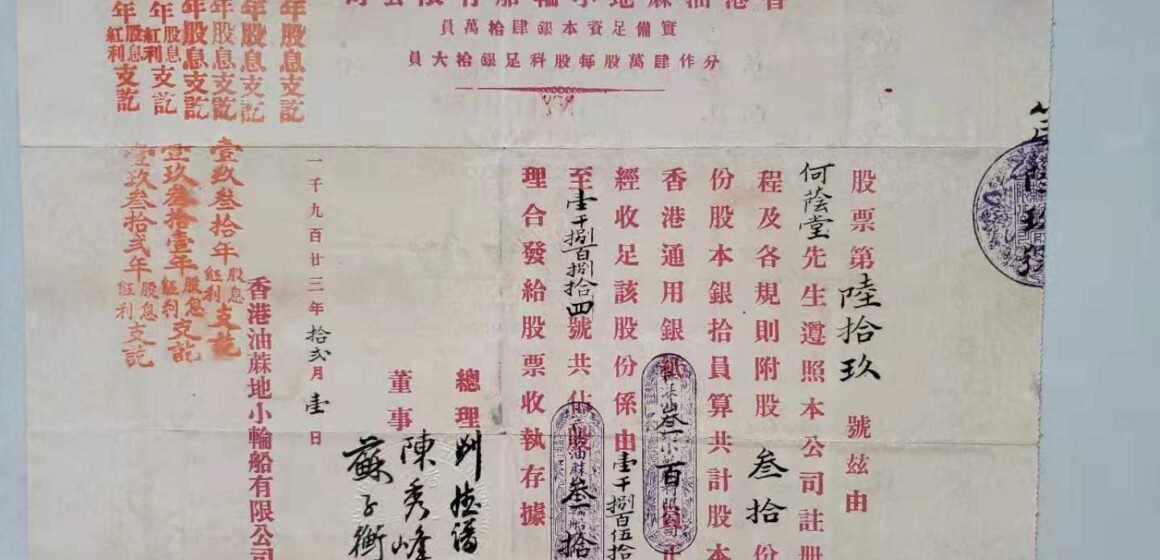 香港油蔴地小輪船有限公司
實備足資本銀肆拾萬員
分作肆萬股每股科足銀拾大員
股票第陸拾玖號茲由
何蔭堂先生遵照本公司註冊
程及各規則附股叁拾份
份股本銀拾員算共計股本
香港通用銀紙叁百員正
經收足該股份係由壹千捌百伍拾
至壹千捌百捌拾四號共佔股叁拾
理合發給股票收執存據
總理
董事 陳秀峰
蘇子衡
一千九百廿三年拾弍月壹日
香港油蔴地小輪船有限公司
年股息支訖
年股息支訖
年股息支訖
年股息支訖
年股息紅利支訖
年股息紅利支訖
壹玖叁拾年股息紅利支訖
壹玖叁拾壹年股息紅利支訖
壹玖叁拾弍年股息紅利支訖